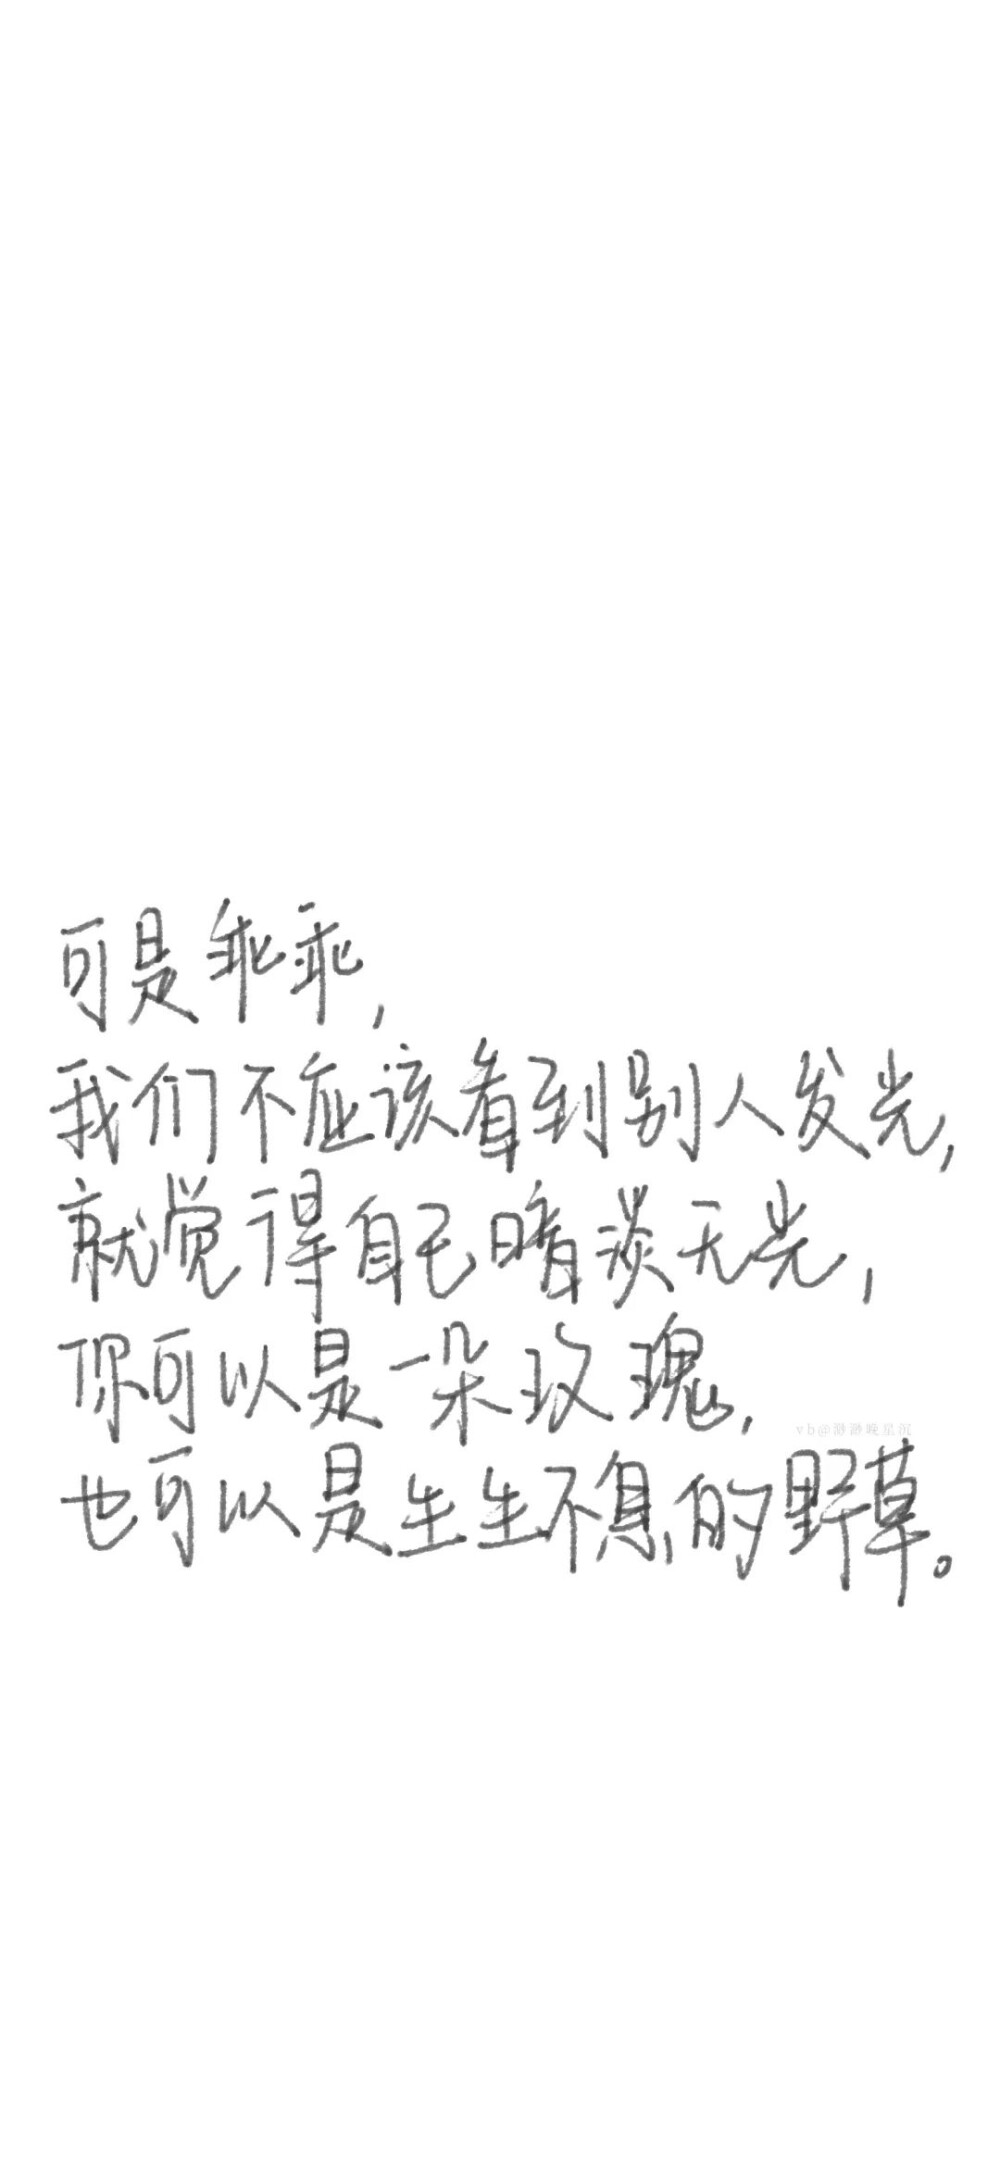 可是乖乖,
我们不应该看到别人发光,
就觉得自己暗淡无光,
你可以是一朵玫瑰,
vb@渺渺晚星沉
也可以是生生不息的野草。